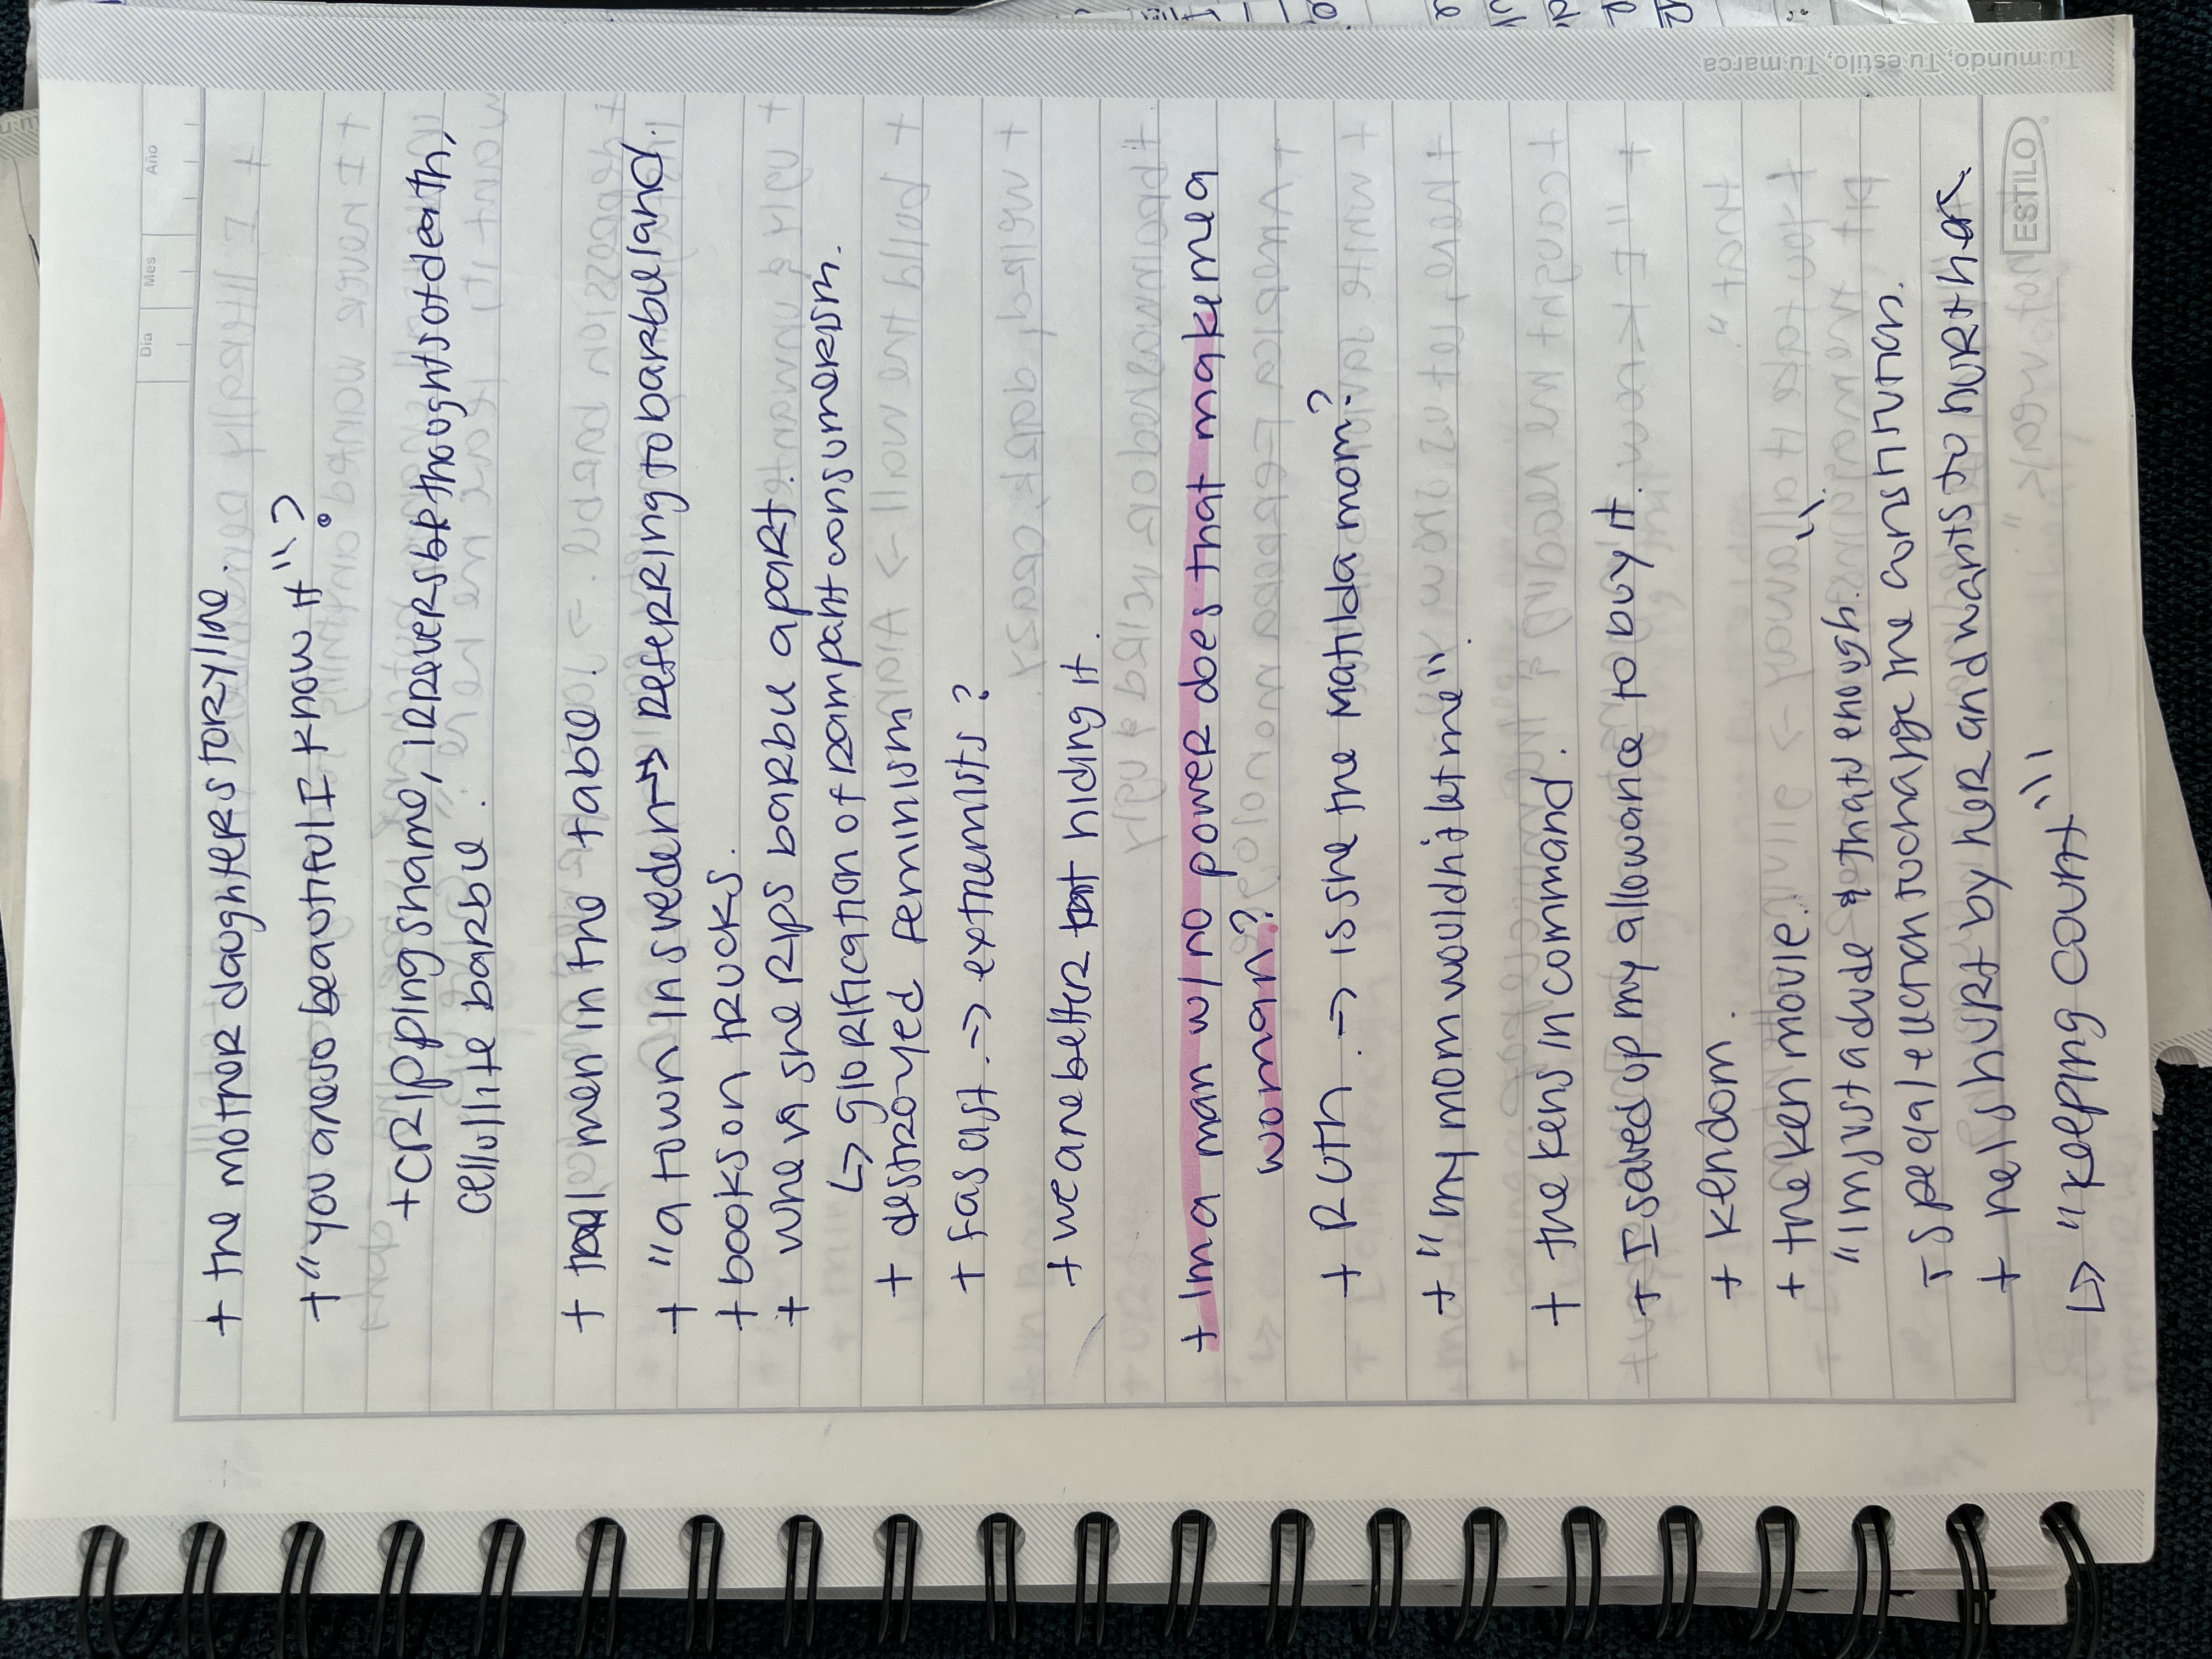 Día Mes Año
+ the mother daughter storyline.
+ "you are so beautiful I know it"?
+ crippling shame, irreversible thoughts of death,
cellulite barbie.
+ all men in the table.
+ "a town in sweden" → referring to barbieland.
+ books on trucks.
+ when she rips barbie apart.
↳ glorification of rampant consumerism.
+ destroyed feminism
+ fascist. → extremists?
+ we are better at hiding it.
+ Im a man w/ no power does that make me a
woman?
+ Ruth. → is she the matilda mom?
+ "my mom wouldn't let me".
+ the kens in command.
+ I saved up my allowance to buy it.
+ kendom.
+ the ken movie.
"Im just a dude & thats enough."
- special election to change the constitution.
+ he is hurt by her and wants to hurt her.
↳ "keeping count"
ESTILO
Tu mundo, Tu estilo, Tu marca